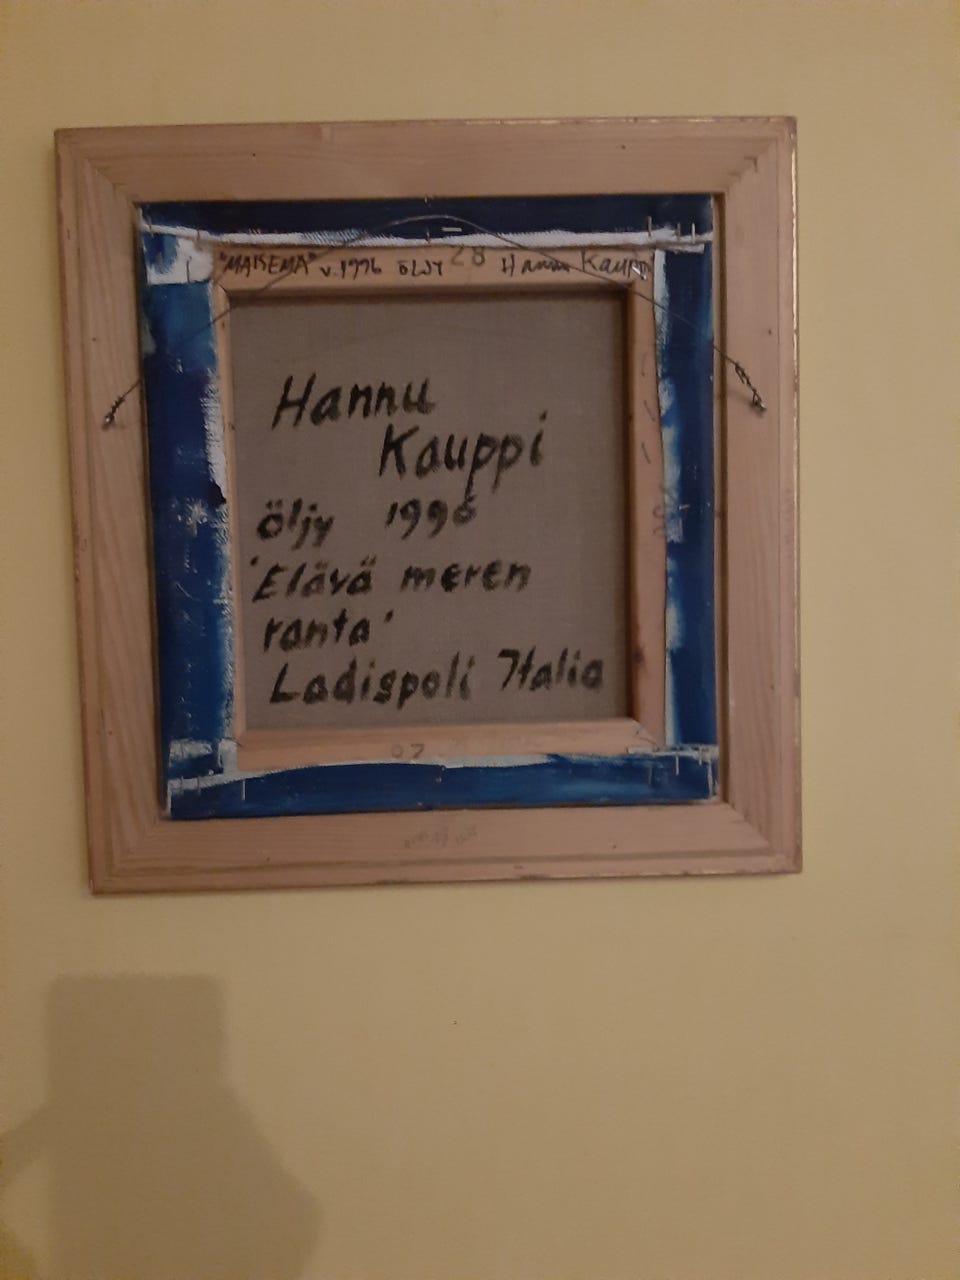 "MAISEMA" v.1996 ÖLJY 28 Hannu Kauppi
Hannu
Kauppi
öljy 1996
"Elävä meren
ranta"
Ladispoli Italia
07